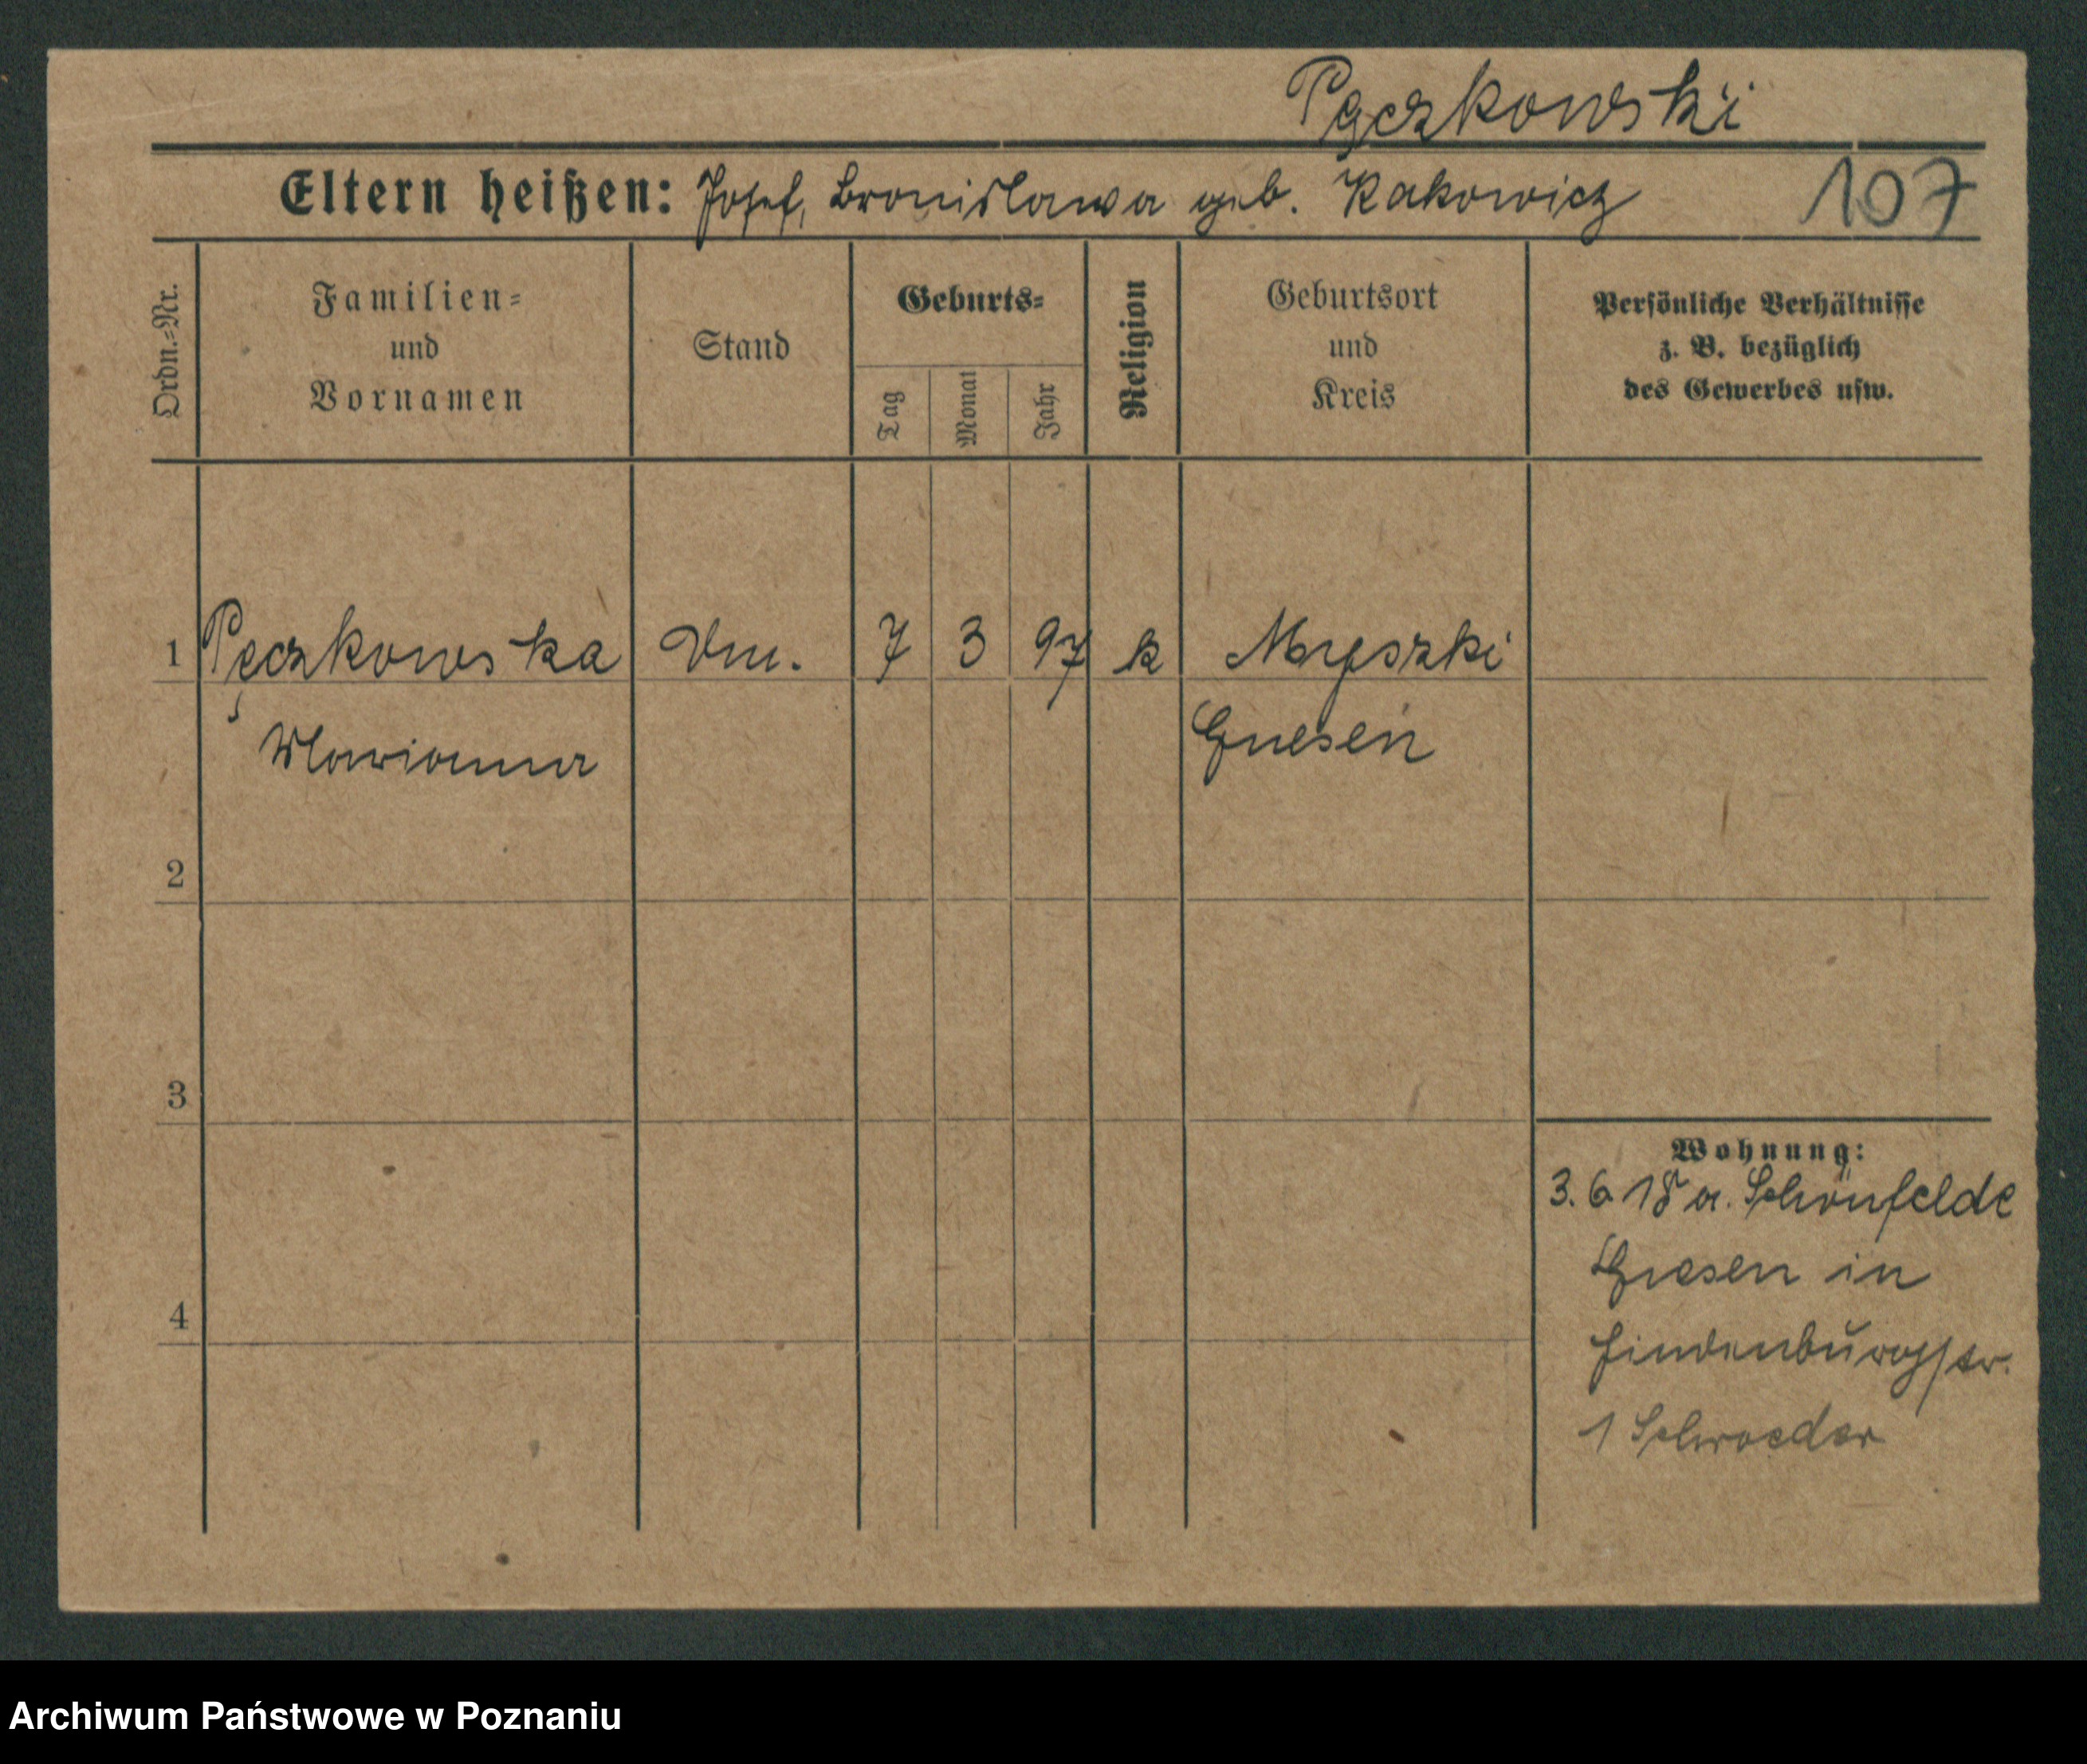 Pęczkowski
Eltern heißen: Josef, Bronislawa geb. Kakowicz 107
Ordn.-Nr.
Familien-
und
Vornamen
Stand
Geburts-
Tag
Monat
Jahr
Religion
Geburtsort
und
Kreis
Persönliche Verhältnisse
z. B. bezüglich
des Gewerbes usw.
1 Pęczkowska 7 3 97 k Myszki
Marianna Gnesen
2
3
4
Wohnung:
3. 6 18 a. Schönfelde
Gnesen in
Hindenburgstr.
1 Schroeder
Archiwum Państwowe w Poznaniu